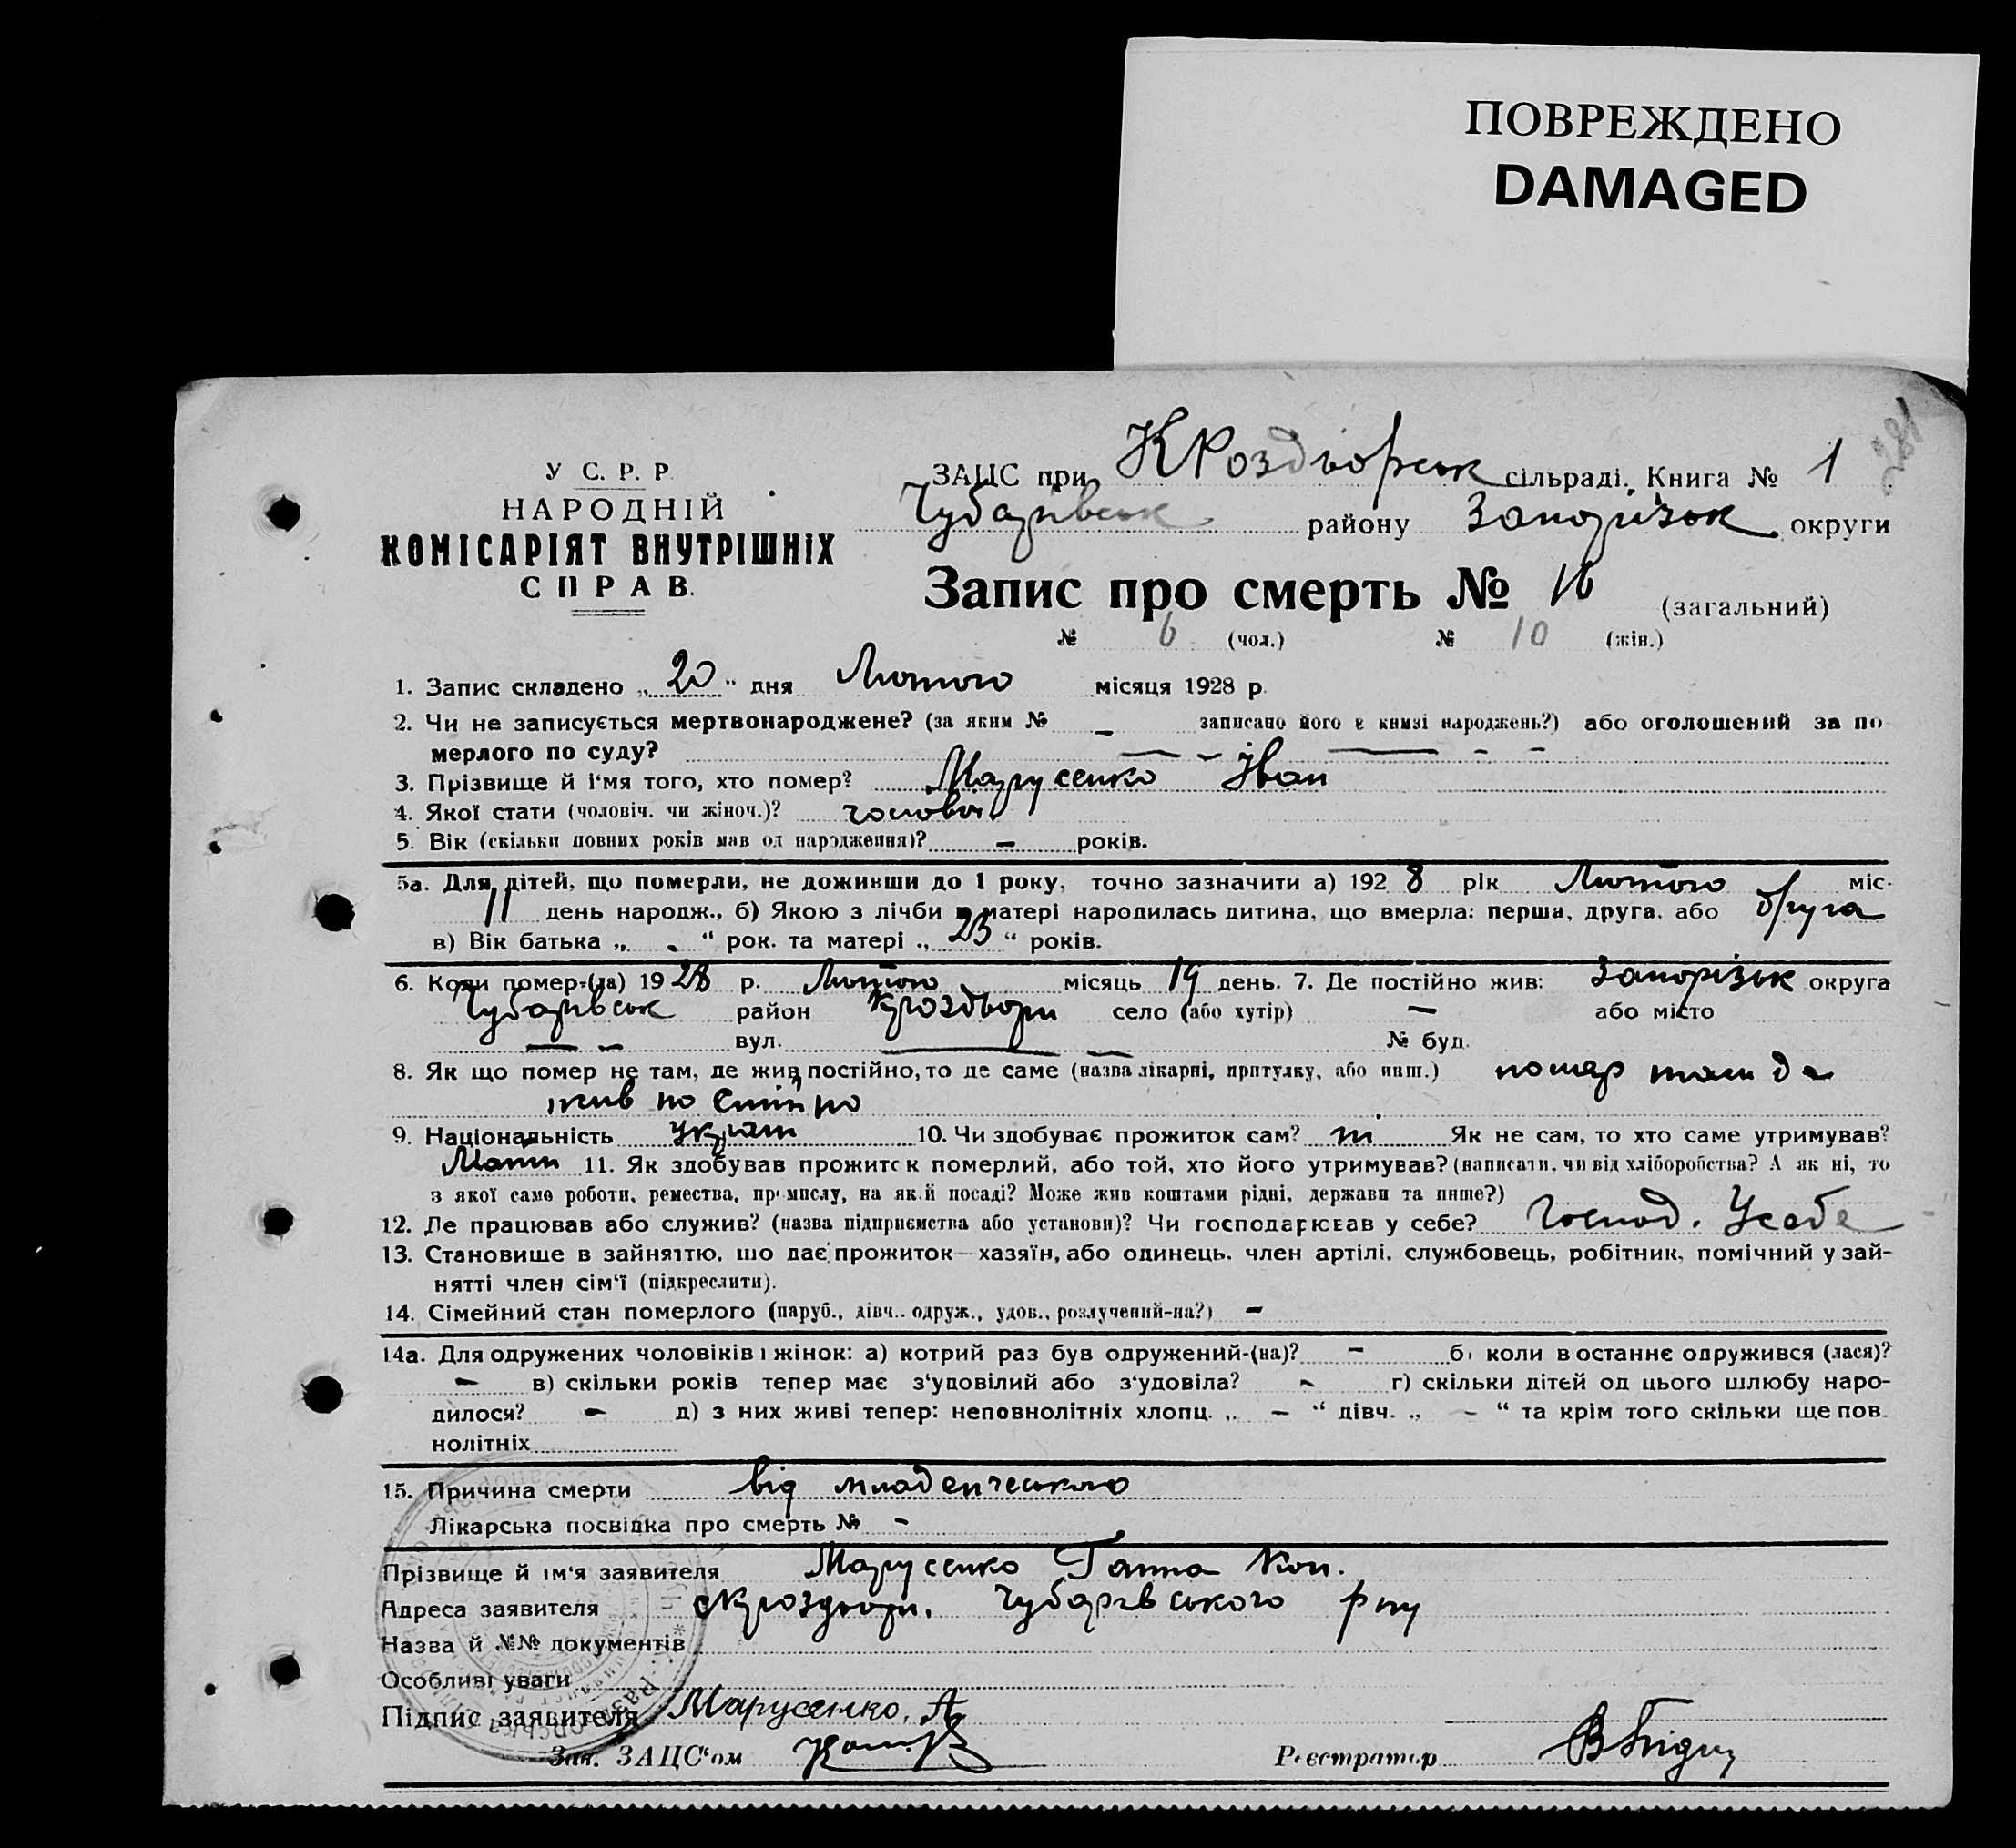 ПОВРЕЖДЕНО
DAMAGED
281
У С. Р. Р.
НАРОДНІЙ
КОМІСАРІЯТ ВНУТРІШНІХ
СПРАВ.
ЗАЦС при КРоздіорськ сільраді. Книга № 1
Чубарівськ району Запорізьк округи
Запис про смерть № 16 (загальний)
№ 6 (чол.) № 10 (жін.)
1. Запис складено „ 20 “ дня Лютого місяця 1928 р.
2. Чи не записується мертвонароджене? (за яким № – записано його в книзі народжень?) або оголошений за по
мерлого по суду? — – — – –
3. Прізвище й і‘мя того, хто помер? Марусенко Іван
4. Якої стати (чоловіч. чи жіноч.)? чоловіч
5. Вік (скільки повних років мав од народження)? – років.
5а. Для дітей, що померли, не доживши до 1 року, точно зазначити а) 192 8 рік Лютого міс.
11 день народж., б) Якою з лічби в матері народилась дитина, що вмерла: перша, друга, або друга
в) Вік батька „ . “ рок. та матері „ 23 “ років.
6. Коли помер-(ла) 19 28 р. Лютого місяць 19 день. 7. Де постійно жив: Запорізьк округа
Чубарівськ район Кроздьори село (або хутір) — або місто
— – вул. — – № буд.
8. Як що помер не там, де жив постійно, то де саме (назва лікарні, притулку, або инш.) помер там де
жив постійно
9. Національність україн 10. Чи здобуває прожиток сам? ні Як не сам, то хто саме утримував?
Мати 11. Як здобував прожиток померлий, або той, хто його утримував? (написати, чи від хліборобства? А як ні, то
з якої саме роботи, ремества, промислу, на якій посаді? Може жив коштами рідні, держави та инше?)
12. Де працював або служив? (назва підприємства або установи)? Чи господарював у себе? Господ. Усебе
13. Становище в зайняттю, що дає прожиток — хазяїн, або одинець, член артілі, службовець, робітник, помічний у зай-
нятті член сім‘ї (підкреслити).
14. Сімейний стан померлого (паруб., дівч., одруж., удов., розлучений-на?) –
14а. Для одружених чоловіків і жінок: а) котрий раз був одружений-(на)? – б) коли востаннє одружився (лася)?
– в) скільки років тепер має з‘удовілий або з‘удовіла? – г) скільки дітей од цього шлюбу наро-
дилося? – д) з них живі тепер: неповнолітніх хлопц. „ – “ дівч. „ – “ та крім того скільки ще пов.
нолітніх
15. Причина смерти від младенческого
Лікарська посвідка про смерть № –
Прізвище й ім‘я заявителя Марусенко Ганна Кон.
Адреса заявителя сКроздьори. Чубарівського рну
Назва й №№ документів
Особливі уваги
Підпис заявителя Марусенко, А
Зав. ЗАЦС‘ом
Реєстратор